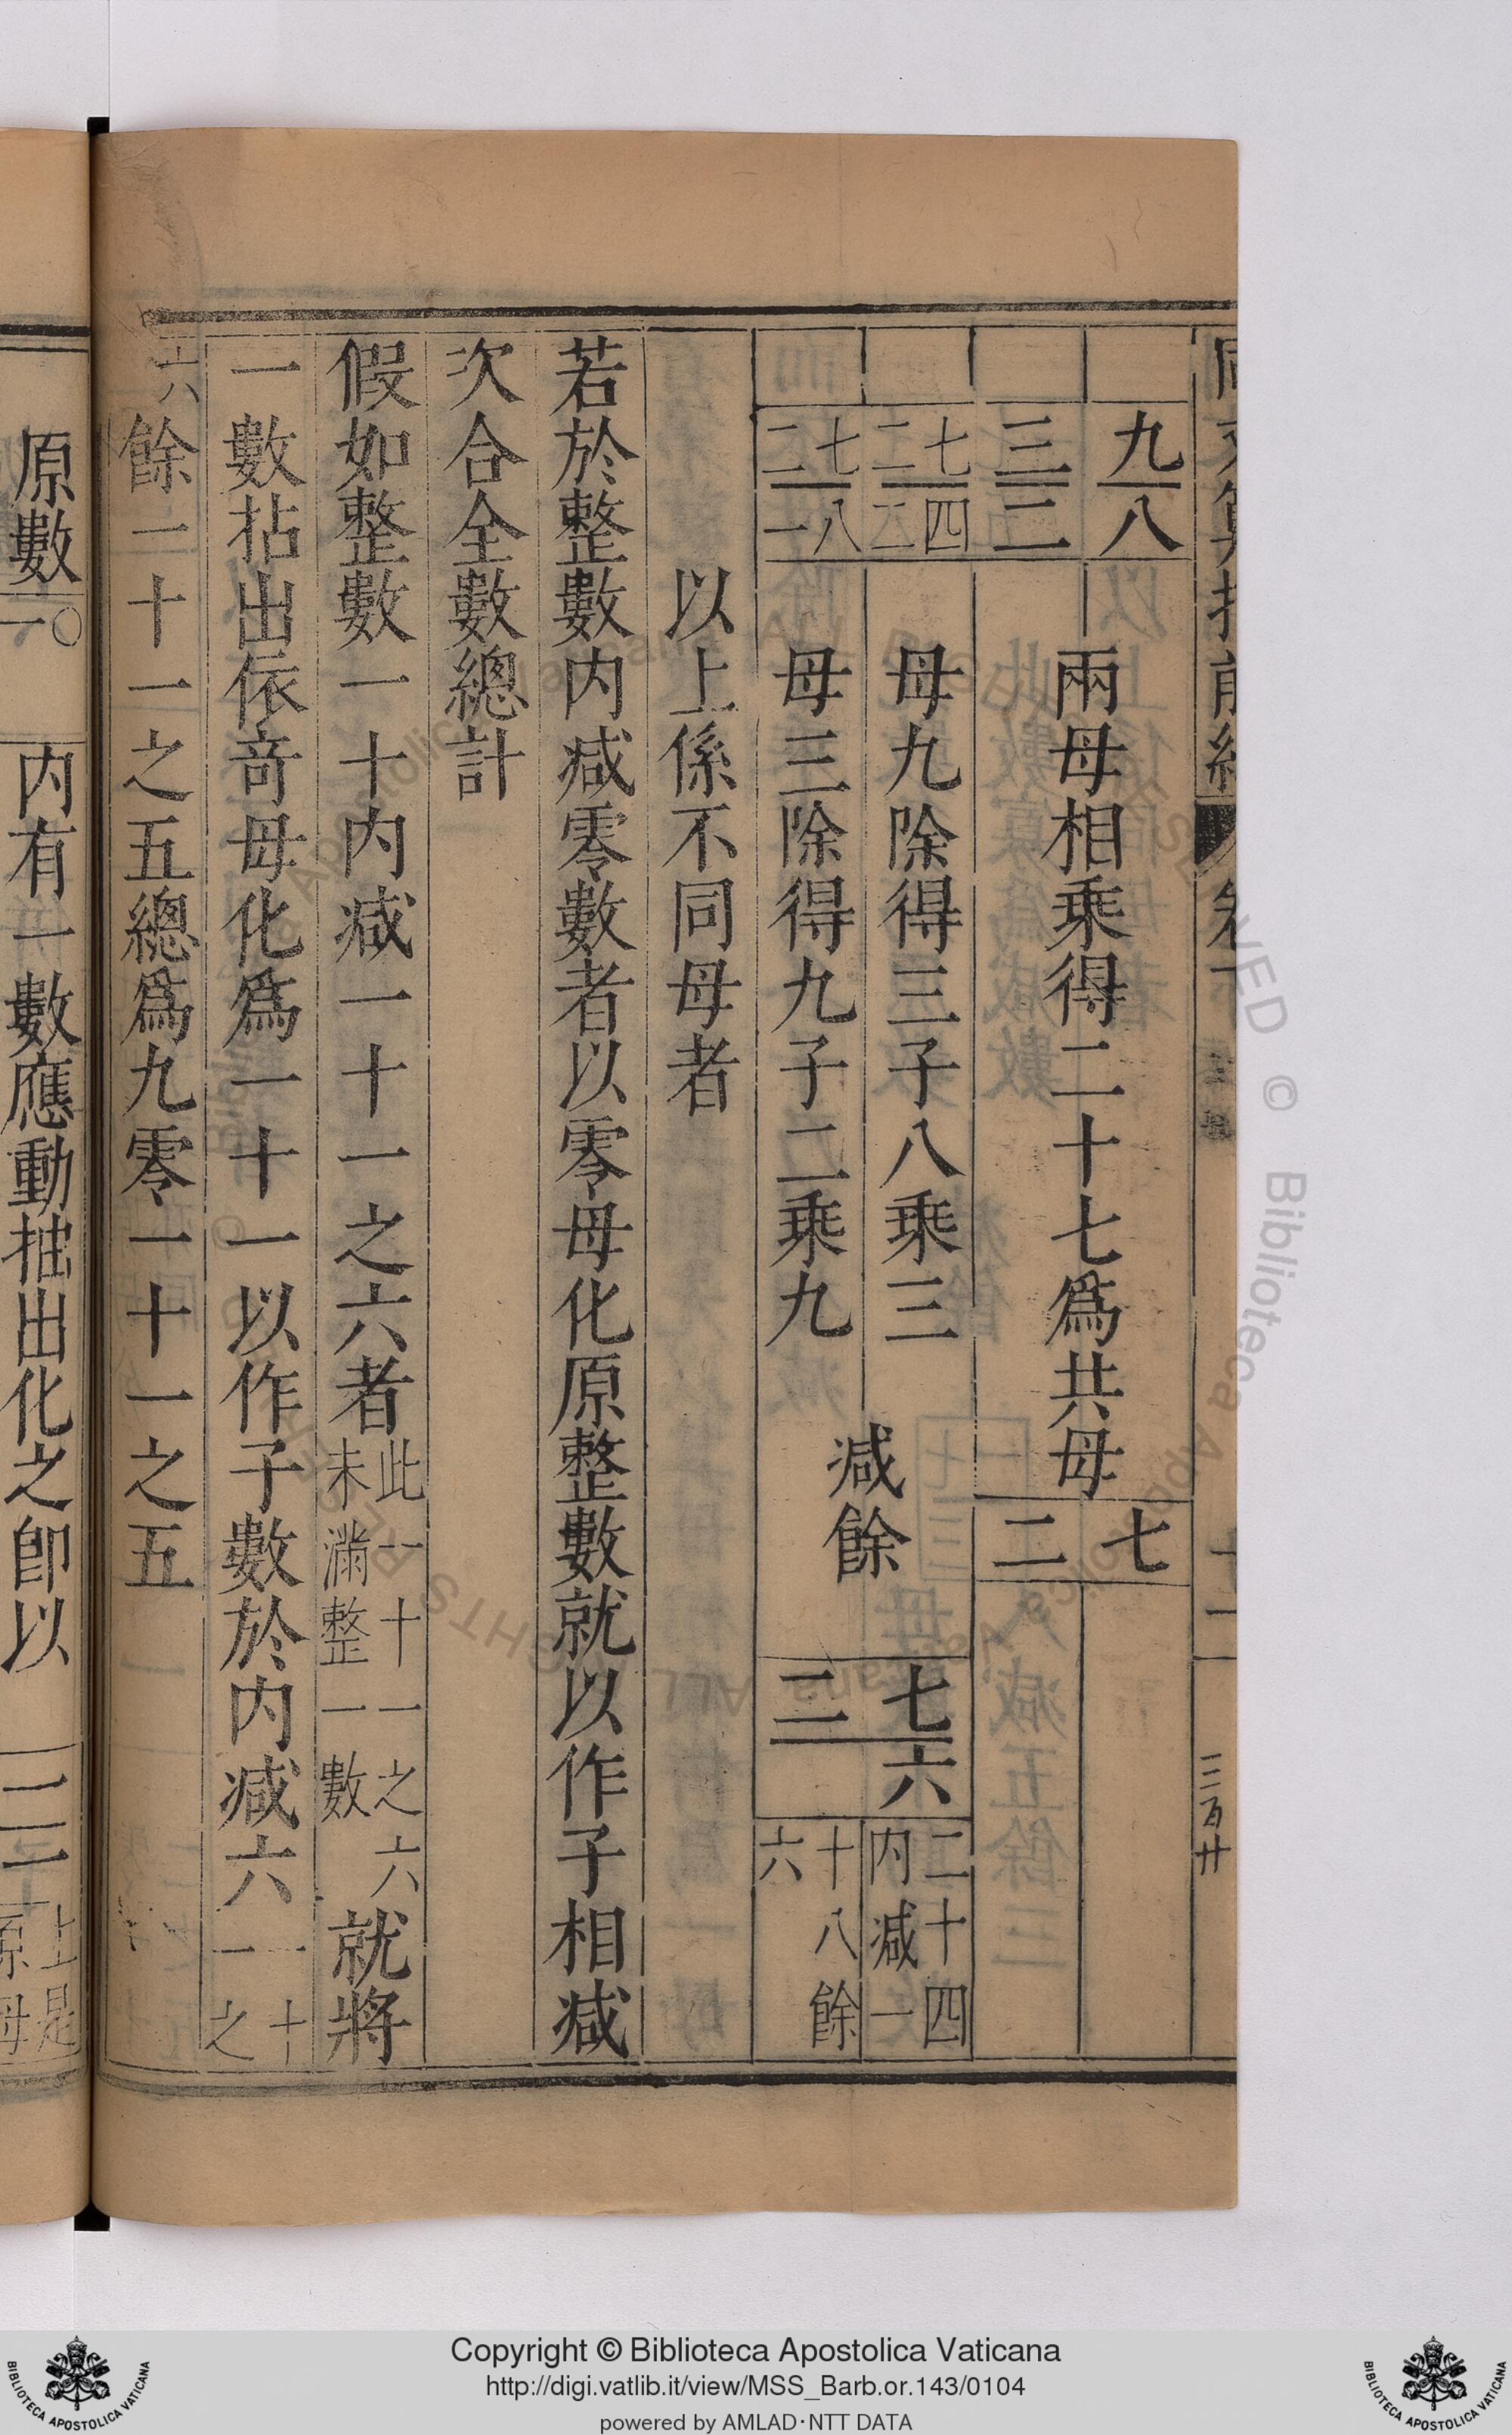 同文算指前編 卷下 十一 三百廿
九 八
三 二
兩母相乘得二十七爲共母
七
二
二七 二四
母九除得三子八乘三
二七 一八
母三除得九子二乘九
減餘
七六
二
二十四內減一
十八餘六
以上係不同母者
若於整數內減零數者以零母化原整數就以作子相減
次合全數總計
假如整數一十內減一十一之六者此一十一之六未滿整一數就將
一數拈出依竒母化爲一十一以作子數於內減六一十一之
六餘一十一之五總爲九零一十一之五
原數一〇
內有一數應動抽出化之卽以
上是原母
Copyright © Biblioteca Apostolica Vaticana
http://digi.vatlib.it/view/MSS_Barb.or.143/0104
powered by AMLAD·NTT DATA
BIBLIOTECA APOSTOLICA VATICANA
BIBLIOTECA APOSTOLICA VATICANA